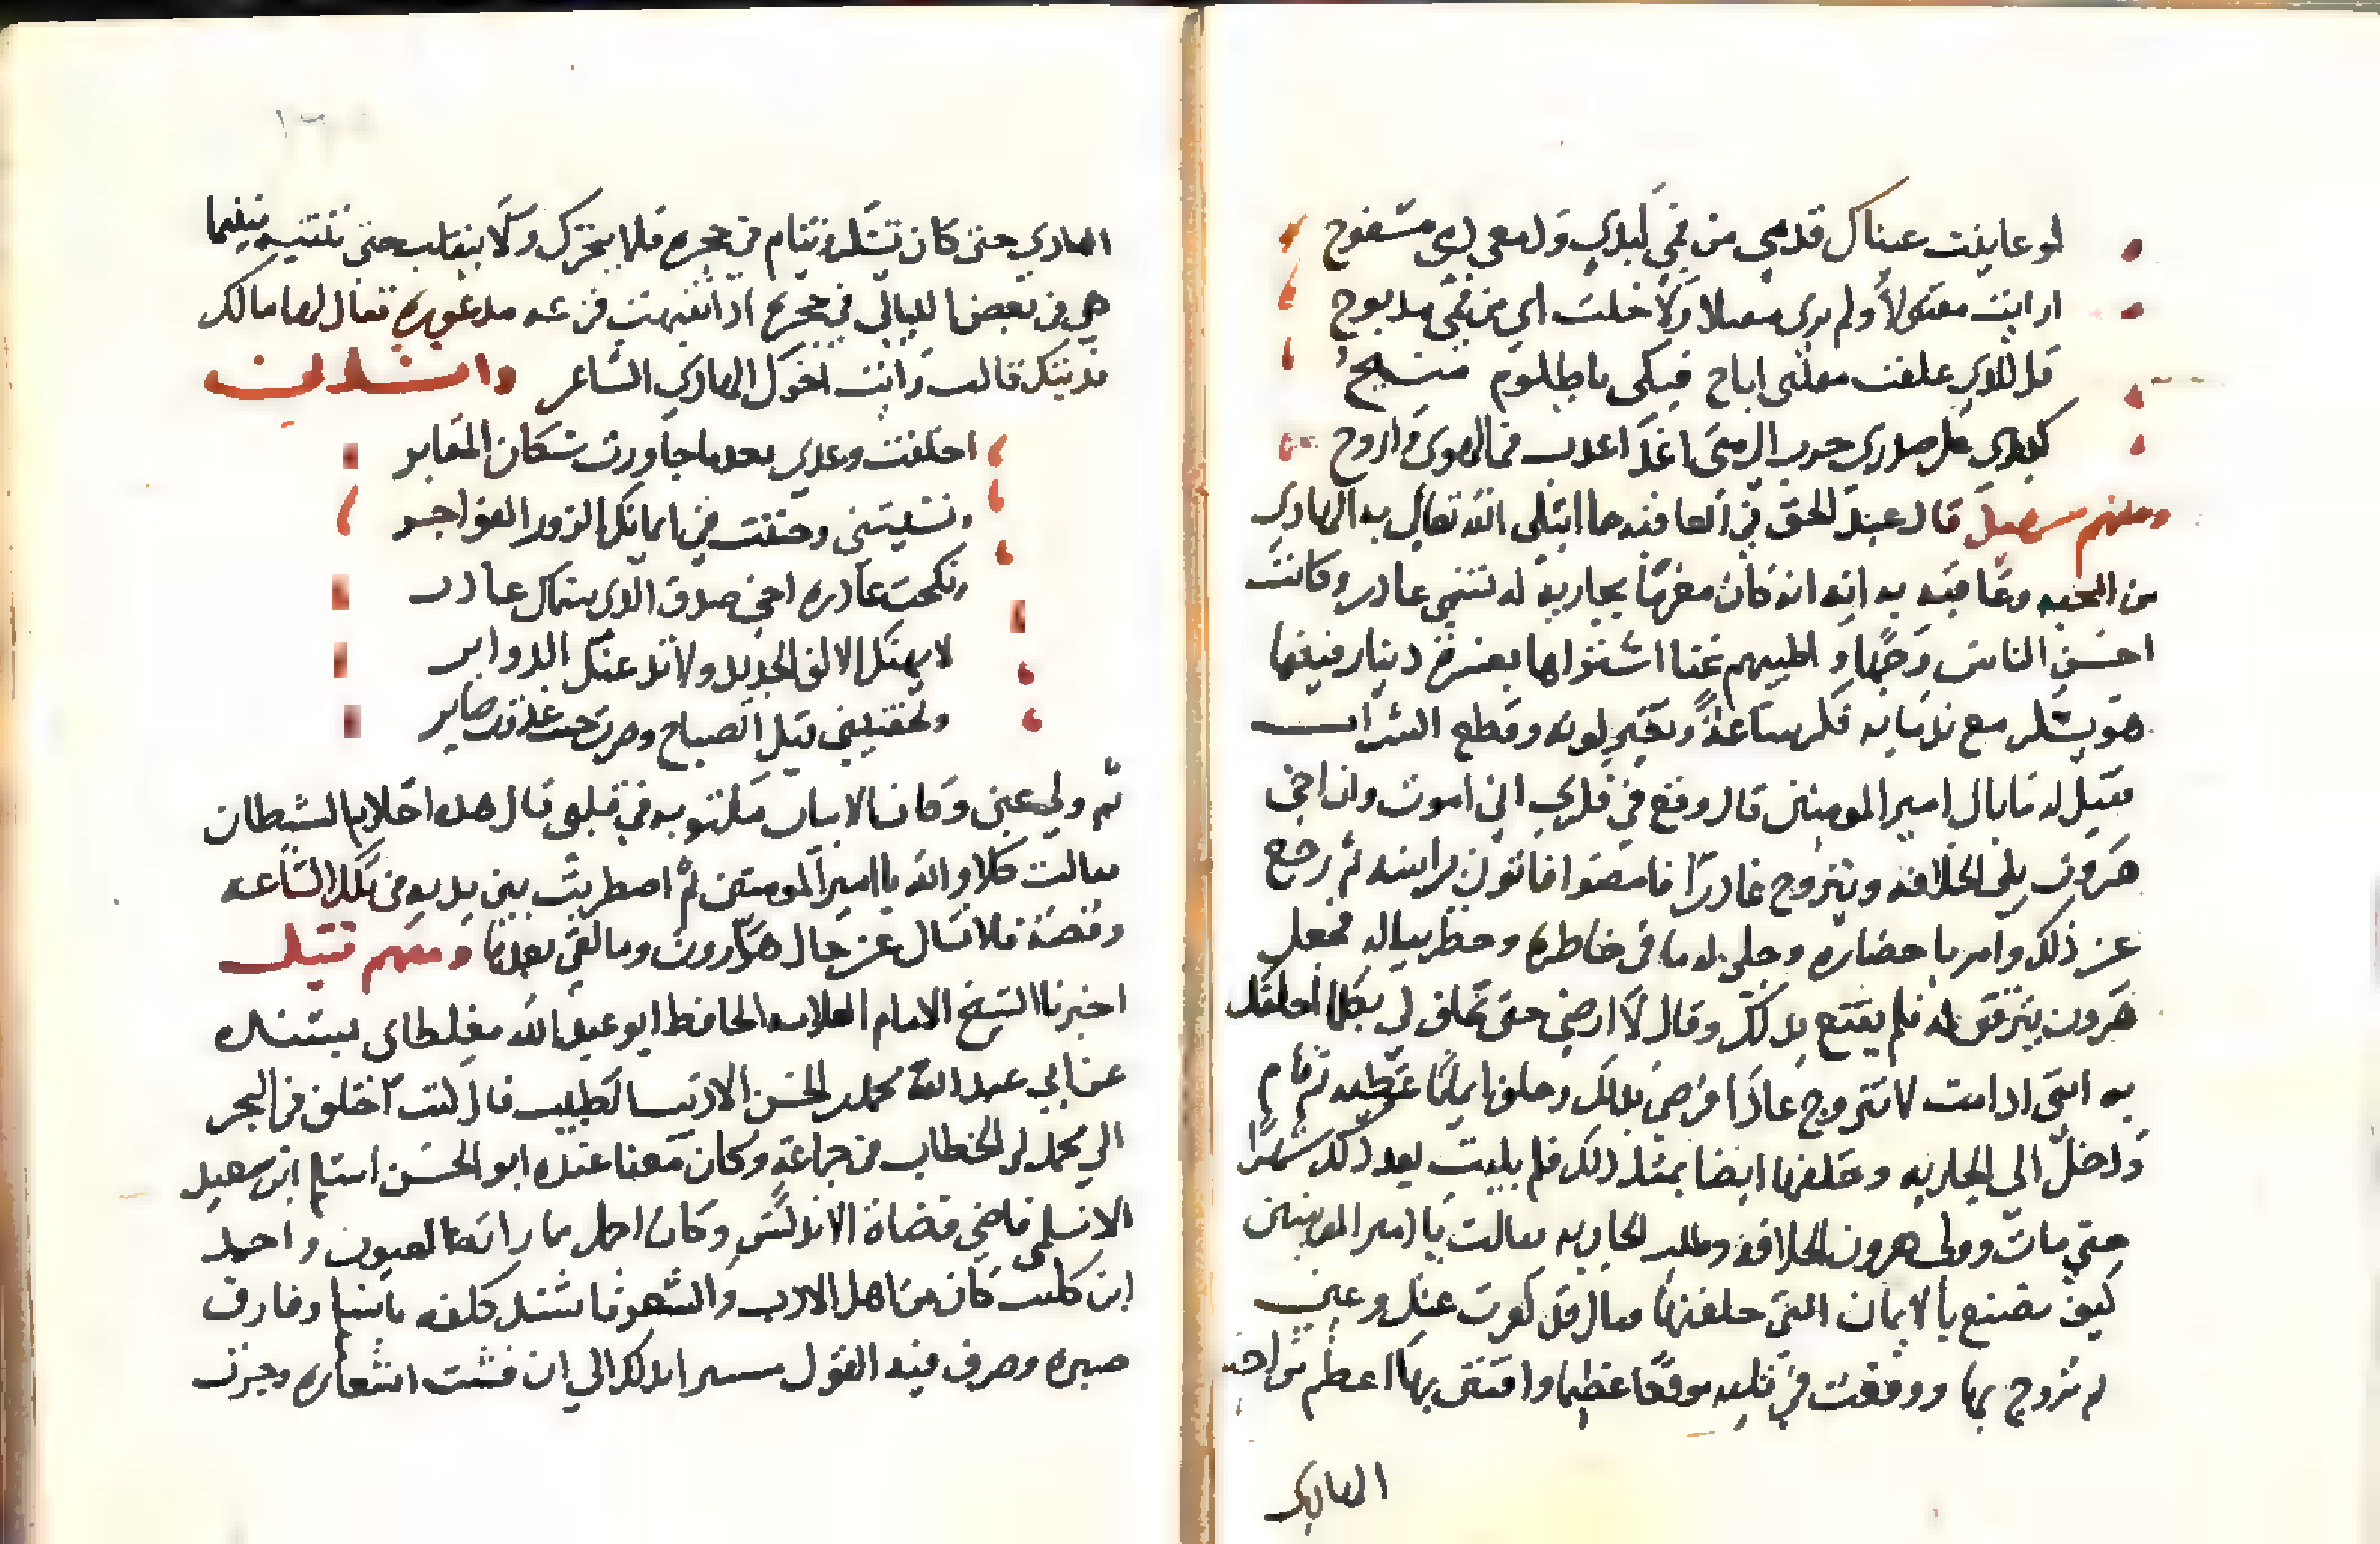 لو عاينت عيناك قدمي من فمي كبدي ولدمعي دمي مسفوح
ارايت مقتولا ولم يرى مقتلا ولا خلت اني من فمي مدبوح
قل للذي علقت مقلتي اباح فبكي ما طلوم
كبدي على صدري حرب الى متى اغدا اعدب في الهوى واروح
ومنهم سعيد قال عبد الحق في العاقبه مما ابتلي الله تعالي به الهادي
من المحبه وعاقبه به انه كان مغرما بجاريه له تسمي غادر وكانت
احسن الناس وجها واطيبهم غنا اشتراها بعشرة دينار فبينما
هو يشكر مع ندمايه فكر ساعة وتغير لونه وقطع الشراب
فقيل له ما بال امير المومنين قال وقع في فكري اني اموت وان اخي
هرون يلي الخلافه ويتزوج غادرا فامضوا فاتوني براسه ثم رجع
عن ذلك وامر باحضاره وحكي له ما في خاطره وخطر بباله فجعل
هرون يترفق له فلم يقنع بذلك وقال لا ارضى حتى تحلف لي بكلما احلفك
به انني اذا مت لا تتزوج غادرا فرضي بذلك وحلف ايمانا عظيمه ثم قام
ودخل الي الجاريه وحلفها ايضا بمثل ذلك فلم يلبث بعد ذلك شهرا
حتى مات وولى هرون الخلافه وطلب الجاريه فقالت يا امير المومنين
كيف تصنع بالايمان التي حلفتها فقال قد كفرت عنك وعني
ثم تزوج بها ووقعت في قلبه موقعا عظيما وافتتن بها اعظم من اخيه
الهادي
الهادي حتى كانت تسكر وتنام في حجره فلا يتحرك ولا ينقلب حتى تنتبه فبينما
هي في بعض الليالي في حجره اذ انتبهت فزعه مذعوره فقال لها مالك
فديتك قالت رايت اخوك الهادي الساعه وانشدني
اخلفت وعدي بعدما جاورت سكان المقابر
ونسيتني وحنثت في ايمانك الزور الفواجر
ونكحت غادره اخي صدق الذي سماك غادر
لا يهنك الالف الجديد ولا تدر عنك الدواير
ولحقتيني قبل الصباح وصرت حيث غدوت صاير
ثم ولي عني وكان الابيات مكتوبه في قلبي قال هذه احلام الشيطان
فقالت كلا والله يا امير المومنين ثم اضطربت بين يديه في تلك الساعه
وقضت فلا تسال عن حال هارون وما لقي بعدها ومنهم قتيل
اخبرنا الشيخ الامام العلامه الحافظ ابو عبد الله مغلطاي بسنده
عن ابي عبد الله محمد بن الحسن الاديب الطبيب قال كنت اختلف في النحو
الي محمد بن الخطاب في جماعة وكان معنا عنده ابو الحسن اسلم ابن سعيد
الاسلمي قاضي قضاة الاندلس وكان اجمل ما راته العيون واحمد
ابن كليب كان من اهل الادب والشعر فاشتد كلفه باسلم وفارق
صبره وصرف فيه القول مسسرا بذلك الي ان فشت اشعاره وجرت